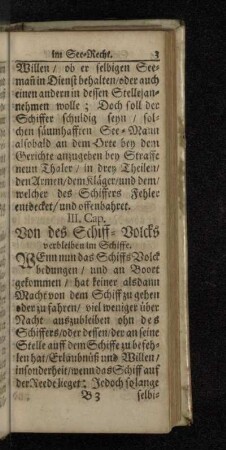 im See-Recht. 3
Willen / ob er selbigen See-
mañ in Dienst behalten / oder auch
einen andern in dessen Stelle an-
nehmen wolle; Doch soll der
Schiffer schuldig seyn / sol-
chen säumhafften See-Mann
alsobald an dem Orte bey dem
Gerichte anzugeben bey Straffe
neun Thaler / in drey Theilen /
den Armen / dem Kläger / und dem /
welcher des Schiffers Fehler
entdecket / und offenbahret.
III. Cap.
Von des Schiff-Volcks
verbleiben im Schiffe.
Wenn nun das Schiffs Volck
bedungen / und an Boort
gekommen / hat keiner alsdann
Macht von dem Schiff zu gehen
oder zu fahren / viel weniger über
Nacht auszubleiben ohn des
Schiffers / oder dessen / der an seine
Stelle auff dem Schiffe zu befeh-
len hat / Erlaubnüß und Willen /
insonderheit / wenn das Schiff auf
der Reede lieget: Jedoch so lange
B 3 selbi-